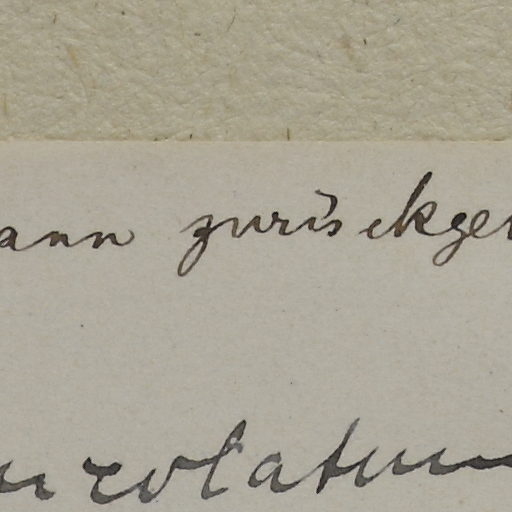 ann zurückge
urolatum